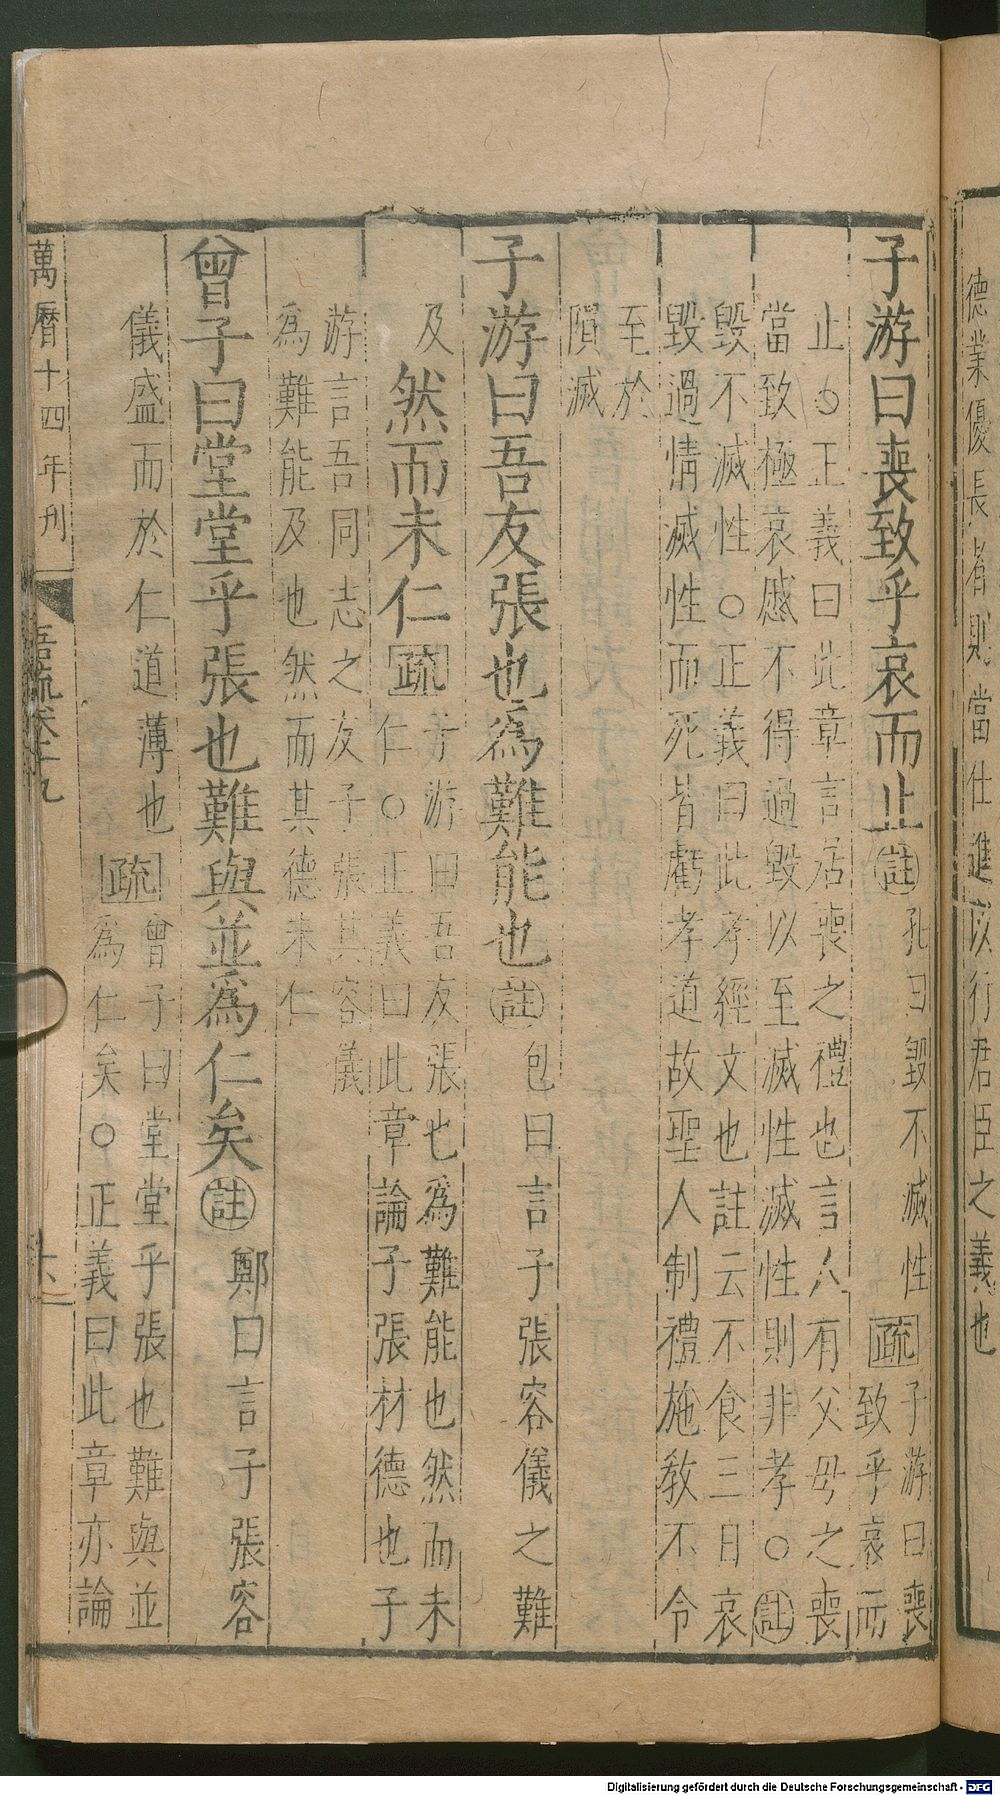 德業優長者則當仕進以行君臣之義也
子游曰喪致乎哀而止註孔曰毀不滅性疏子游曰喪
致乎哀而
止○正義曰此章言居喪之禮也言人有父母之喪
當致極哀慼不得過毀以至滅性滅性則非孝○註
毀不滅性○正義曰此孝經文也註云不食三日哀
毀過情滅性而死皆虧孝道故聖人制禮施教不令
至於
隕滅
子游曰吾友張也為難能也註包曰言子張容儀之難
及
然而未仁疏子游曰吾友張也為難能也然而未
仁○正義曰此章論子張材德也子
游言吾同志之友子張其容儀
為難能及也然而其德未仁
曾子曰堂堂乎張也難與並為仁矣註鄭曰言子張容
儀盛而於仁道薄也疏曾子曰堂堂乎張也難與並
為仁矣○正義曰此章亦論
萬曆十四年刊
語疏卷十九
Digitalisierung gefördert durch die Deutsche Forschungsgemeinschaft - DFG